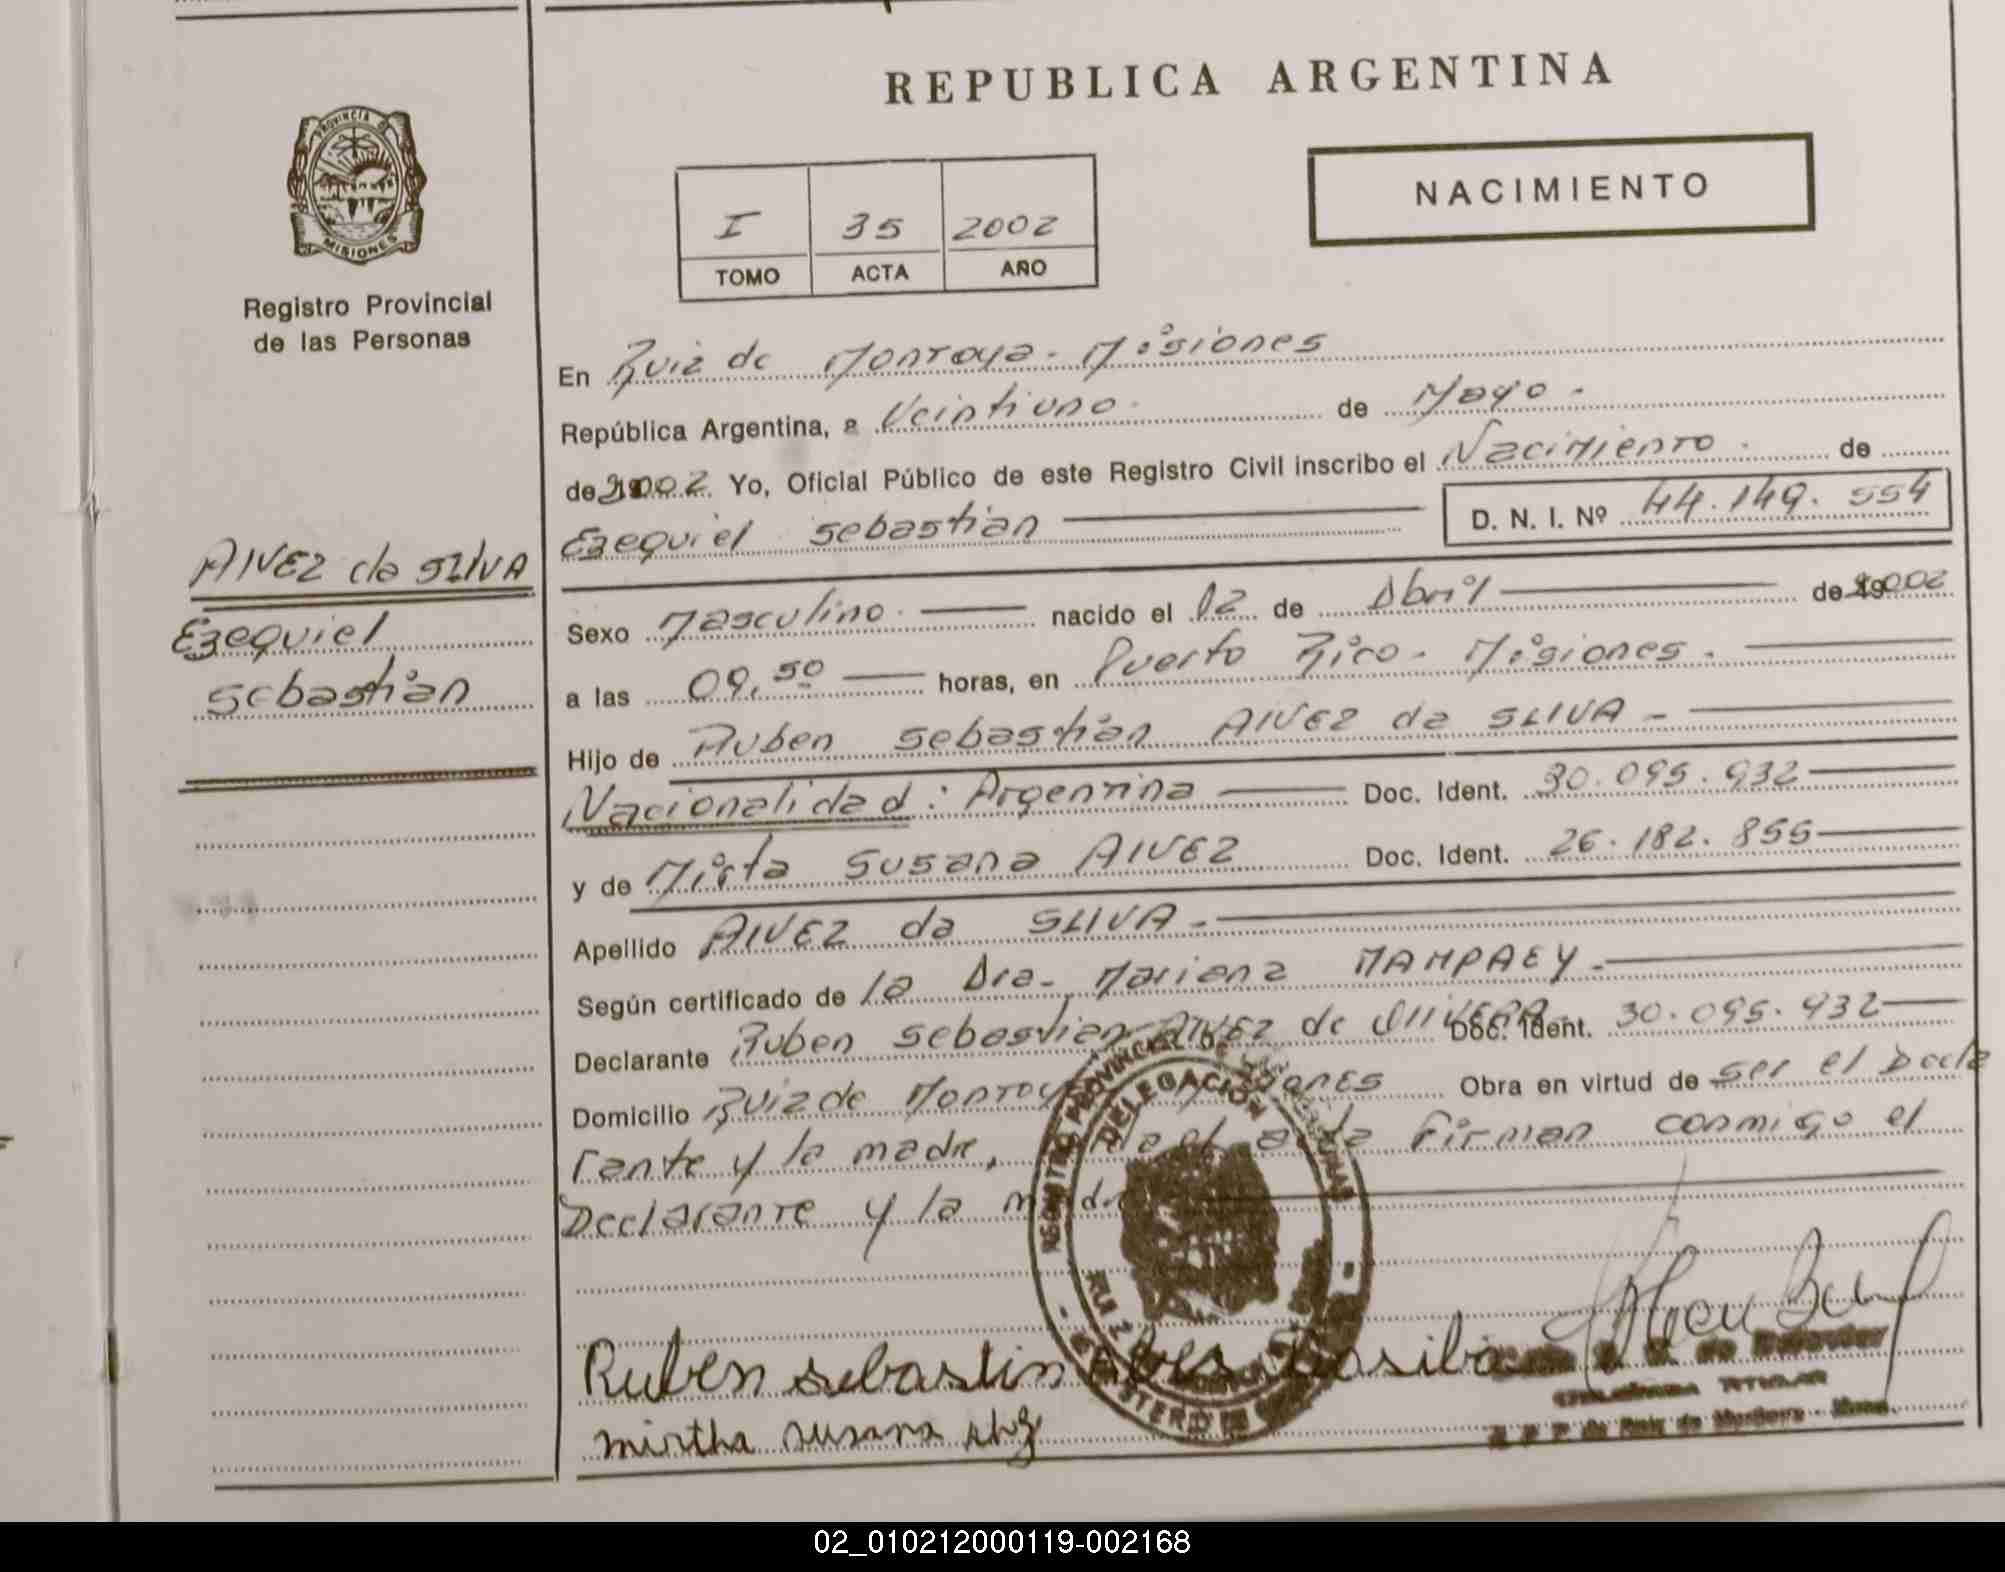 REPUBLICA ARGENTINA
PROVINCIA DE
MISIONES
Registro Provincial
de las Personas
NACIMIENTO
I 35 2002
TOMO ACTA AÑO
En Ruiz de Montoya - Misiones
República Argentina, a Veintiuno. de Mayo -
de 2002 Yo, Oficial Público de este Registro Civil inscribo el Nacimiento. de
Ezequiel Sebastián D. N. I. Nº 44.149.554
ALVEZ da SILVA
Ezequiel
Sebastián
Sexo Masculino. nacido el 02 de Abril de 2002
a las 09,50 horas, en Puerto Rico - Misiones.
Hijo de Ruben Sebastián ALVEZ da SLIVA -
Nacionalidad: Argentina Doc. Ident. 30.095.932
y de Mirta Susana ALVEZ Doc. Ident. 26.182.855
Apellido ALVEZ da SLIVA -
Según certificado de la Dra. Mariana MAMPAEY -
Declarante Ruben Sebastian ALVEZ de Doc. Ident. 30.095.932
Domicilio Ruiz de Obra en virtud de ser el Decla
rante y la madre, Firman conmigo el
Declarante y la madre
REGISTRO PROVINCIAL DE LAS PERSONAS
DELEGACION
Ruben sebastin
mirtha susana
TITULAR
02_010212000119-002168